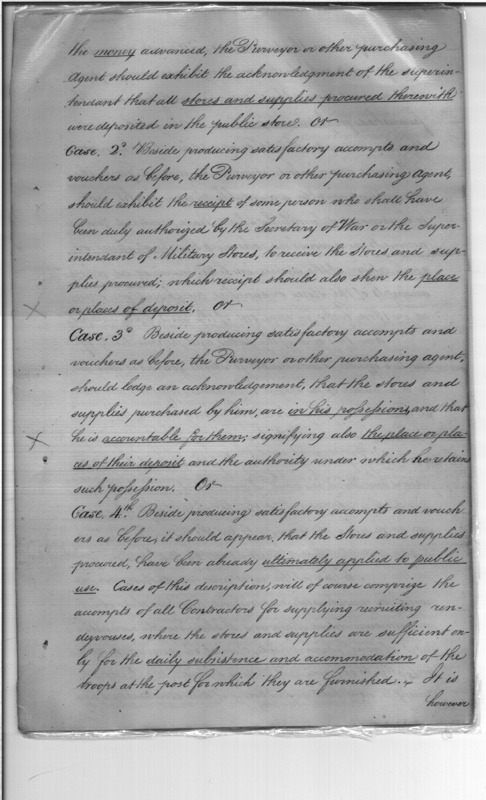 the money advanced, the Purveyor or other purchasing
Agent should exhibit the acknowledgment of the superin-
tendant that all stores and supplies procured therewith
were deposited in the public store. Or
Case. 2d. Beside producing satisfactory accompts and
vouchers as before, the Purveyor or other purchasing agent,
should exhibit the receipt of some person who shall have
been duly authorized by the Secretary of War or the Super-
intendant of Military Stores, to receive the Stores and sup-
plies procured; which receipt should also shew the place
or places of deposit. Or
Case. 3d Beside producing satisfactory accompts and
vouchers as before, the Purveyor or other purchasing agent,
should lodge an acknowledgement, that the stores and
supplies purchased by him, are in his possession, and that
he is accountable for them; signifying also the place or pla-
ces of their deposit and the authority under which he retains
such possession. Or
Case. 4th. Beside producing satisfactory accompts and vouch
ers as before, it should appear, that the Stores and supplies
procured, have been already ultimately applied to public
use. Cases of this description, will of course comprize the
accompts of all Contractors for supplying recruiting ren-
dezvouses, where the stores and supplies are sufficient on-
ly for the daily subsistence and accommodation of the
troops at the post for which they are furnished. It is
however